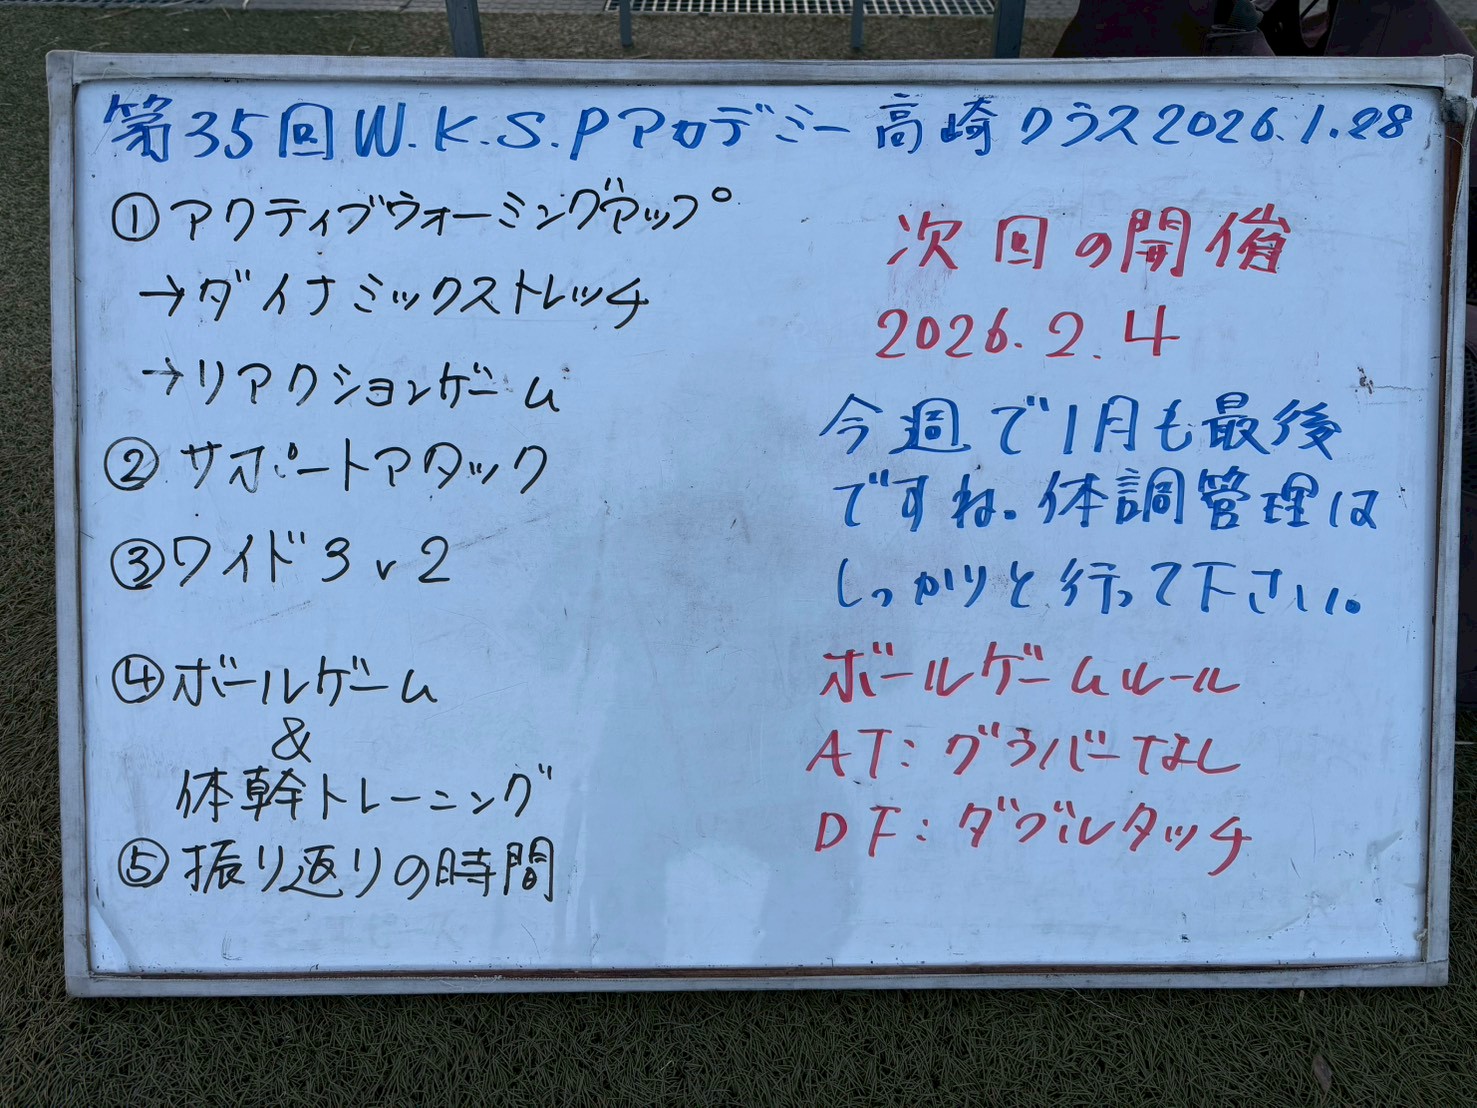 第35回W.K.S.Pアカデミー高崎クラス2026.1.28
①アクティブウォーミングアップ
→ダイナミックストレッチ
→リアクションゲーム
②サポートアタック
③ワイド3v2
④ボールゲーム
&
体幹トレーニング
⑤振り返りの時間
次回の開催
2026.2.4
今週で1月も最後
ですね。体調管理は
しっかりと行って下さい。
ボールゲームルール
AT:グラバーなし
DF:ダブルタッチ